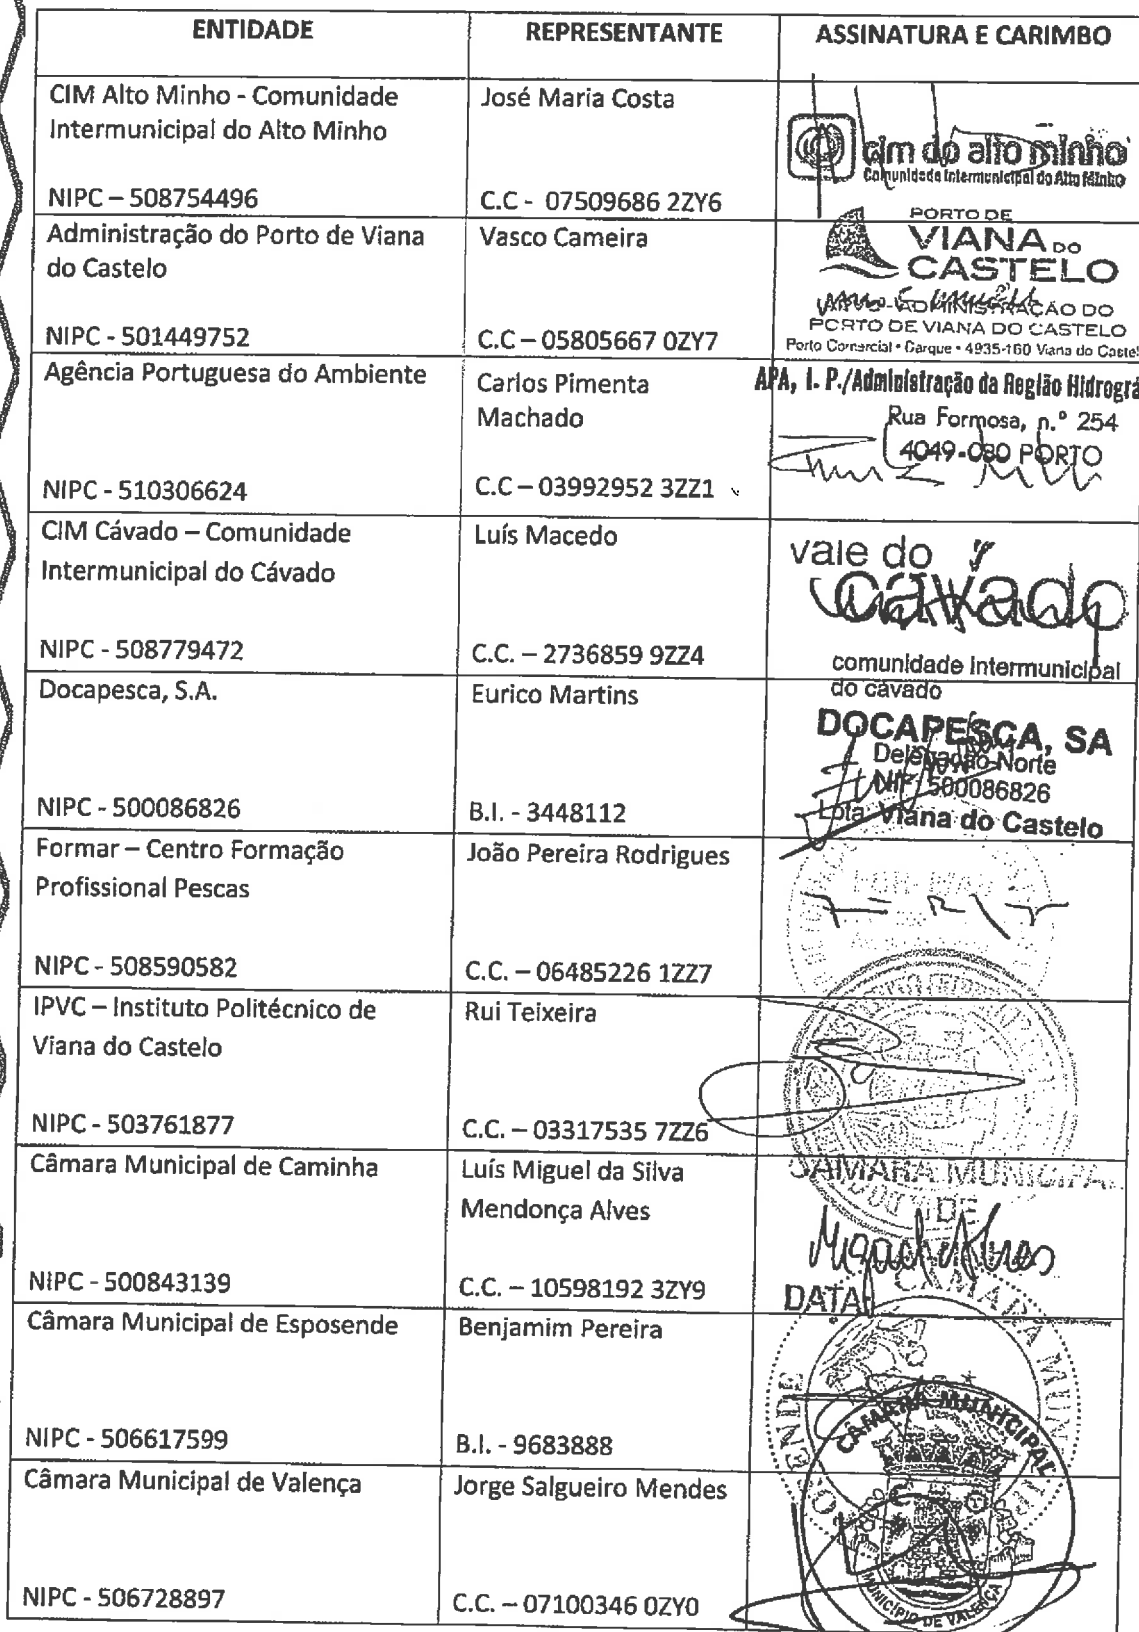 ENTIDADE
REPRESENTANTE
ASSINATURA E CARIMBO
CIM Alto Minho - Comunidade
Intermunicipal do Alto Minho
NIPC – 508754496
José Maria Costa
C.C - 07509686 2ZY6
cim do alto minho
Comunidade Intermunicipal do Alto Minho
Administração do Porto de Viana
do Castelo
NIPC - 501449752
Vasco Cameira
C.C – 05805667 0ZY7
PORTO DE
VIANA DO
CASTELO
ADMINISTRAÇÃO DO
PORTO DE VIANA DO CASTELO
Porto Comercial • Darque • 4935-160 Viana do Castel
Agência Portuguesa do Ambiente
NIPC - 510306624
Carlos Pimenta
Machado
C.C – 03992952 3ZZ1
APA, I. P./Administração da Região Hidrográ
Rua Formosa, n.º 254
4049-030 PORTO
CIM Cávado – Comunidade
Intermunicipal do Cávado
NIPC - 508779472
Luís Macedo
C.C. – 2736859 9ZZ4
vale do
cavado
comunidade intermunicipal
do cávado
Docapesca, S.A.
NIPC - 500086826
Eurico Martins
B.I. - 3448112
DOCAPESCA, SA
Delegação Norte
NIF 500086826
Lota Viana do Castelo
Formar – Centro Formação
Profissional Pescas
NIPC - 508590582
João Pereira Rodrigues
C.C. – 06485226 1ZZ7
IPVC – Instituto Politécnico de
Viana do Castelo
NIPC - 503761877
Rui Teixeira
C.C. – 03317535 7ZZ6
Câmara Municipal de Caminha
NIPC - 500843139
Luís Miguel da Silva
Mendonça Alves
C.C. – 10598192 3ZY9
CAMARA MUNICIPAL
DE
Miguel Alves
DATA
Câmara Municipal de Esposende
NIPC - 506617599
Benjamim Pereira
B.I. - 9683888
CAMARA MUN
Câmara Municipal de Valença
NIPC - 506728897
Jorge Salgueiro Mendes
C.C. – 07100346 0ZY0
CÂMARA MUNICIPAL
MUNICÍPIO DE VALENÇA